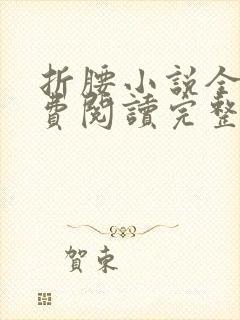 折腰小说全
費閱讀完整
賀東